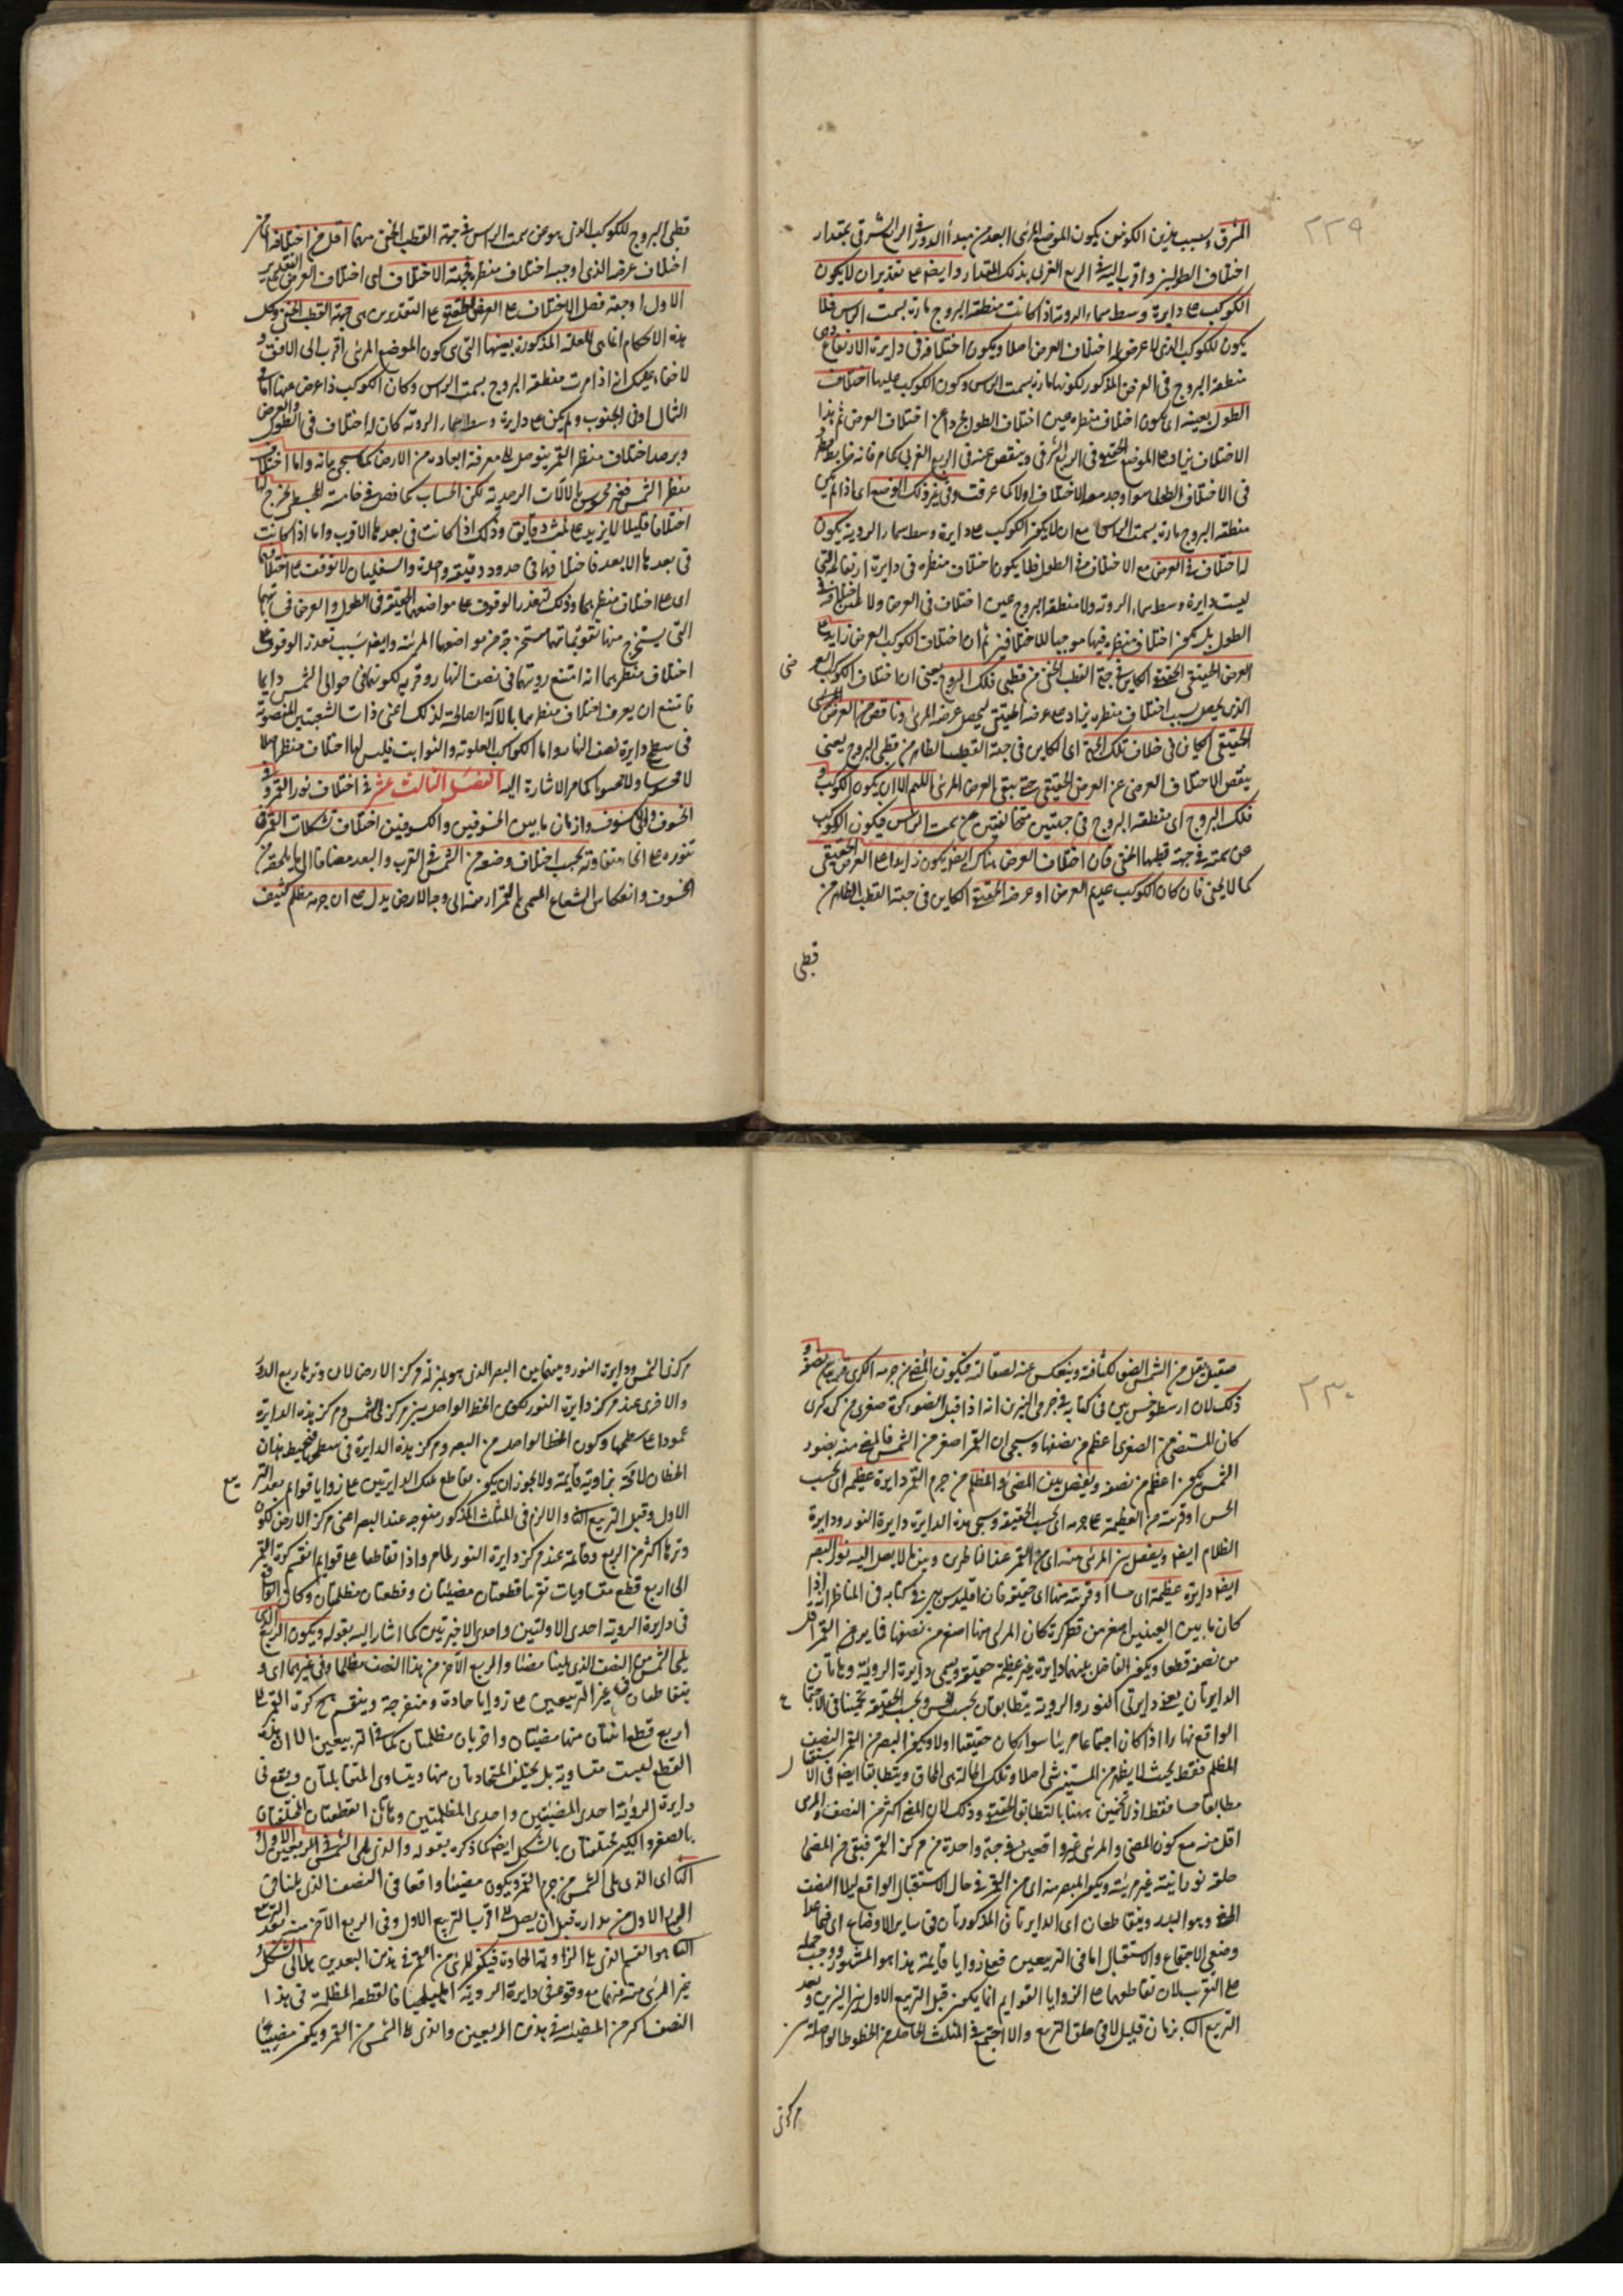 ٢٢٩
المشرق وبسبب هذين الكونين يكون الموضع المرئى ابعد من مبدأ الدور فى الربع الشرقى بمقدار
اختلاف الطول واقرب اليه فى الربع الغربى بذلك المقدار وايضا على تقدير ان لا يكون
الكوكب على دايرة وسط سماء الروية اذا كانت منطقة البروج مارة بسمت الراس فلا
يكون للكوكب الذى لا عرض له اختلاف العرض اصلا ويكون اختلافه فى دايرة الارتفاع
منطقة البروج فى العرض المذكور لكونها مارة بسمت الراس وكون الكوكب عليها اختلاف
الطول بعينه اى يكون اختلاف منظره عين اختلاف الطول مجردا عن اختلاف العرض ثم هذا
الاختلاف يزاد على الموضع الحقيقى فى الربع الشرقى وينقص عنه فى الربع الغربى كما مر فانه ضابط
فى الاختلاف الطولى سواء وجد معه الاختلاف اولا كما عرفت وفى غير ذلك الوضع اى اذا لم يكن
منطقة البروج مارة بسمت الراس مع ان لا يكون الكوكب على دايرة وسط سماء الروية يكون
له اختلاف فى العرض مع الاختلاف فى الطول فلا يكون اختلاف منظره فى دايرة ارتفاعه التى
ليست دايرة وسط سماء الروية ولا منطقة البروج عين اختلاف فى العرض ولا عين اختلافه فى
الطول بل يكون اختلاف منظره فيها موجبا للاختلافين ثم ان اختلاف الكوكب العرضى زايد على
العرض الحقيقى الكاين فى جهة القطب الخفى من قطبى فلك البروج يعنى ان اختلاف الكوكب
الذى يحصل بسبب اختلاف منظره يزاد على عرضه الحقيقى ليحصل عرضه المرئى وناقص من العرض
الحقيقى الكاين فى خلاف تلك الجهة اى الكاين فى جهة القطب الظاهر من قطبى البروج يعنى
ينقص الاختلاف العرضى عن العرض الحقيقى حتى يبقى العرض المرئى اللهم الا ان يكون الكوكب و
فلك البروج اى منطقة البروج فى جهتين متخالفتين عن سمت الراس فيكون الكوكب
عن سمته فى جهة قطبها الخفى فان اختلاف العرض هناك ايضا يكون زايدا على العرض الحقيقى
كما لا يخفى فان كان الكوكب عديم العرض او عرضه الحقيقى الكاين فى جهة القطب الظاهر من
قطبى
قطبى البروج للكوكب الذى هو عن سمت الراس فى جهة القطب الخفى منهما اقل من اختلافه
اختلاف عرضه الذى اوجبه اختلاف منظره فجهة الاختلاف اى اختلاف العرض على التقدير
الاول او جهة فضل الاختلاف على العرض الحقيقى على التقديرين هى جهة القطب الخفى وكل
هذه الاحكام انما هى للعلة المذكورة بعينها التى هى كون الموضع المرئى اقرب الى الافق و
لا خفاء عليك انه اذا مرت منطقة البروج بسمت الراس وكان الكوكب ذا عرض عنها اما فى
الشمال او فى الجنوب ولم يكن على دايرة وسط سماء الروية كان له اختلاف فى الطول والعرض
وبرصد اختلاف منظر القمر يتوصل الى معرفة ابعاده من الارض كما سيجى بيانه واما اختلاف
منظر الشمس فغير محسوس بالالات الرصدية لكن الحساب كما فصل فى خامسة المجسطى يخرج لها
اختلافا قليلا لا يزيد على ثلث دقايق وذلك اذا كانت فى بعدها الاقرب واما اذا كانت
فى بعدها الابعد فاختلافها فى حدود دقيقة واحدة والسفليان لا توقف على اختلافهما
اى على اختلاف منظريهما وذلك لتعذر الوقوف على مواضعهما الحقيقية فى الطول والعرض
التى يستخرج منها تقويماتهما مستخرجة من مواضعهما المرئية وايضا بسبب تعذر الوقوف على
اختلاف منظريهما انه امتنع رويتهما فى نصف النهار وقربه لكونهما فى حوالى الشمس دايما
فامتنع ان يعرف اختلاف منظريهما بالالة الصالحة لذلك اعنى ذات الشعبتين المنصوبة
فى سطح دايرة نصف النهار واما الكواكب العلوية والثوابت فليس لها اختلاف منظر اصلا
لا محسوسا ولا محسوبا كما مر الاشارة اليه الفصل الثالث عشر فى اختلاف نور القمر و
الخسوف والكسوف وازمان ما بين الخسوفين والكسوفين اختلاف تشكلات القمر فى
تنوره على انحاء متفاوتة بحسب اختلاف وضعه من الشمس فى القرب والبعد مضافا الى ما يلحقه من
الخسوف وانعكاس الشعاع المسمى بالقمراء منه الى وجه الارض يدل على ان جرمه مظلم كثيف
٢٣٠
صقيل يقبل من الشمس الضوء لكثافته وينعكس عنه لصقالته فيكون المضئ من جرمه الكرى
ذلك لان ارسطوخس بين فى كتابه فى جرمى النيرين انه اذا قبل الضوء كرة صغرى من كرة كبرى
كان المستضئ من الصغرى اعظم من نصفها وسيجى ان القمر اصغر من الشمس فالمضئ منه بضوء
الشمس يكون اعظم من نصفه ويفصل بين المضئ والمظلم من جرم القمر دايرة عظيمة اى بحسب
الحس او قريبة من العظيمة على جرمه اى بحسب الحقيقة وسمى هذه الدايرة دايرة النور ودايرة
الظلام ايضا ويفصل بين المرئى منه اى من القمر عند الناظرين وبين ما لا يصل اليه نور البصر
ايضا دايرة عظيمة اى حسا او قريبة منها اى حقيقة فان اقليدس بين فى كتابه فى المناظر انه اذا
كان ما بين العينين اصغر من قطر كرة كان المرئى منها اصغر من نصفها فما يرى من القمر اقل
من نصفه قطعا ويكون الفاصل بينهما دايرة غير عظيمة حقيقة وسمى دايرة الروية وهاتان
الدايرتان يعنى دايرتى النور والروية يتطابقان بحسب الحس وبحسب الحقيقة تخمينا فى الاجتماع
الواقع نهارا اذا كان اجتماعا مرئيا سواء كان حقيقيا اولا ويكون البصر من القمر النصف
المظلم فقط بحيث لا يظهر من المستنير شى اصلا وتلك الحالة هى المحاق ويتطابقا ايضا فى الاستقبال
مطابقا حسا فقط اذ لا تخمين ههنا بالتطابق الحقيقى وذلك لان المضئ اكثر من النصف والمرئى
اقل منه مع كون المضئ والمرئى غير واقعين فى جهة واحدة من مركز القمر فيبقى من المضئ
حلقة نورانية غير مرئية ويكون المبصر منه اى من القمر فى حال الاستقبال الواقع ليلا النصف
المضئ وهو البدر ويتقاطعان اى الدايرتان المذكورتان فى ساير الاوضاع اى فيما عدا
وضعى الاجتماع والاستقبال اما فى التربيعين فعلى زوايا قايمة هذا هو المشهور ووجب حمله
على التقريب لان تقاطعهما على الزوايا القوايم انما يكون قبل التربيع الاول بين النيرين وبعد
التربيع الثانى بزمان قليل لا فى حاق التربيع والا اجتمع فى المثلث الحاصل من الخطوط الواصلة بين
مركزى
مركزى الشمس ودايرة النور وبينهما بين البصر الذى هو بمنزلة مركز الارض
والاخرى عند مركز دايرة النور لكون الخط الواصل بين مركزى الشمس ومركز هذه الدايرة
عمودا على سطحها وكون الخط الواصل من البصر ومركز هذه الدايرة فى سطحها فيحيط هذان
الخطان لا محة بزاوية قايمة ولا يجوز ان يكون تقاطع تلك الدايرتين على زوايا قوايم بعد التربيع
الاول وقبل التربيع الثانى والا لزم فى المثلث المذكور منفرجة عند البصر اعنى مركز الارض لكون
وترها اكثر من الربع وقايمة عند مركز دايرة النور لما مر واذا تقاطعا على قوايم انقسم كرة القمر
الى اربع قطع متساويات تقريبا قطعتان مضيئتان وقطعتان مظلمتان وكان الواقع
فى دايرة الروية احدى الاولتين واحدى الاخيرتين كما اشار اليه بقوله ويكون الربع الذى
يلى الشمس من النصف الذى يلينا مضيئا والربع الاخر من هذا النصف مظلما وفى غيرهما اى و
يتقاطعان فى غير التربيعين على زوايا حادة ومنفرجة وينقسم ح كرة القمر الى
اربع قطع اثنتان منها مضيئتان واخريان مظلمتان كما فى التربيعين الا ان هذه
القطع ليست متساوية بل يختلف المتجاورتان منها ويتساوى المتقابلتان ويقع فى
دايرة الروية احدى المضيئتين واحدى المظلمتين وهاتان القطعتان المختلفتان
بالصغر والكبر مختلفتان بالشكل ايضا كما ذكره بقوله والذى يلى الشمس فى الربعين الاول و
الثانى اى الذى يلى الشمس من جرم القمر ويكون مضيئا واقعا فى النصف الذى يلينا فى
الربع الاول من مداره قبل ان يصل الى قرب التربيع الاول وفى الربع الاخر منه بعد التربيع
الثانى هو القسم الذى يلى الزاوية الحادة فيكون المرئى من القمر فى هذين البعدين هلالى الشكل و
غير المرئى منه فيهما مع وقوعه فى دايرة الروية اهليلجيا فالقطعة المظلمة فى هذا
النصف اكبر من المضيئة فى هذين الربعين والذى يلى الشمس من القمر ويكون مضيئا